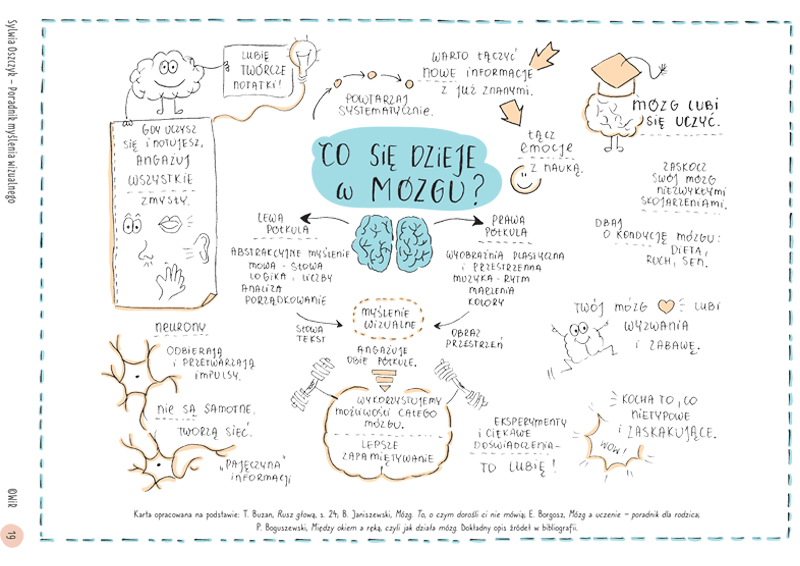 Sylwia Oszczyk – Poradnik myślenia wizualnego
LUBIĘ
TWÓRCZE
NOTATKI!
GDY UCZYSZ
SIĘ I NOTUJESZ,
ANGAŻUJ
WSZYSTKIE
ZMYSŁY.
POWTARZAJ
SYSTEMATYCZNIE.
WARTO ŁĄCZYĆ
NOWE INFORMACJE
Z JUŻ ZNANYMI.
ŁĄCZ
EMOCJE
Z NAUKĄ.
MÓZG LUBI
SIĘ UCZYĆ.
CO SIĘ DZIEJE
W MÓZGU?
ZASKOCZ
SWÓJ MÓZG
NIEZWYKŁYMI
SKOJARZENIAMI.
DBAJ
O KONDYCJĘ MÓZGU:
DIETA,
RUCH, SEN.
LEWA
PÓŁKULA
ABSTRAKCYJNE MYŚLENIE
MOWA - SŁOWA
LOGIKA, LICZBY
ANALIZA
PORZĄDKOWANIE
PRAWA
PÓŁKULA
WYOBRAŹNIA PLASTYCZNA
I PRZESTRZENNA
MUZYKA - RYTM
MARZENIA
KOLORY
SŁOWA
TEKST
MYŚLENIE
WIZUALNE
OBRAZ
PRZESTRZEŃ
ANGAŻUJE
OBIE PÓŁKULE.
WYKORZYSTUJEMY
MOŻLIWOŚCI CAŁEGO
MÓZGU.
LEPSZE
ZAPAMIĘTYWANIE
NEURONY
ODBIERAJĄ
I PRZETWARZAJĄ
IMPULSY.
NIE SĄ SAMOTNE.
TWORZĄ SIEĆ.
„PAJĘCZYNA"
INFORMACJI
TWÓJ MÓZG LUBI
WYZWANIA
I ZABAWĘ.
KOCHA TO, CO
NIETYPOWE
I ZASKAKUJĄCE.
WOW!
EKSPERYMENTY
I CIEKAWE
DOŚWIADCZENIA-
TO LUBIĘ!
Karta opracowana na podstawie: T. Buzan, Rusz głową, s. 24; B. Janiszewski, Mózg. To, o czym dorośli ci nie mówią; E. Borgosz, Mózg a uczenie – poradnik dla rodzica;
P. Boguszewski, Między okiem a ręką, czyli jak działa mózg. Dokładny opis źródeł w bibliografii.
©WiR
19